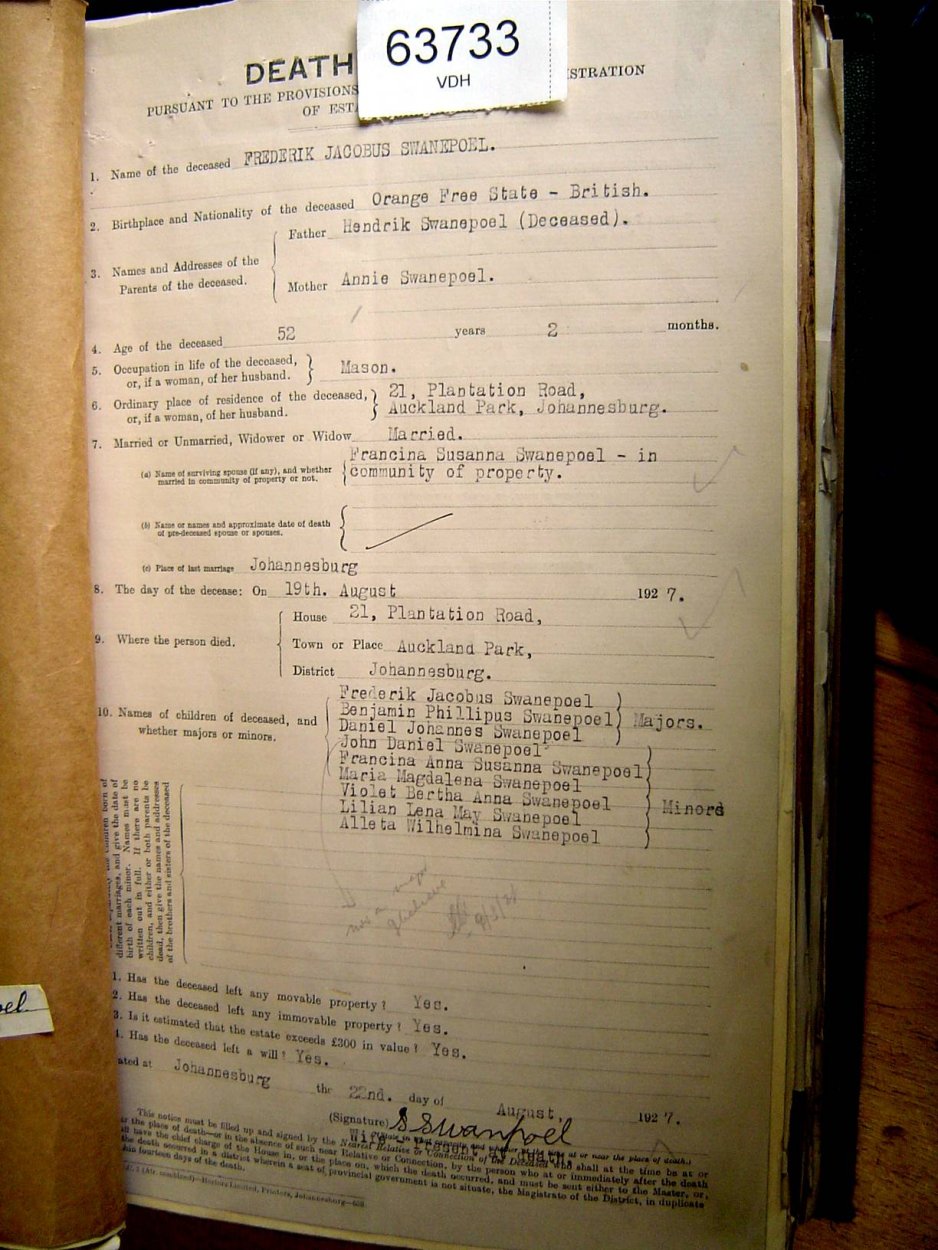 63733
VDH
DEATH
PURSUANT TO THE PROVISIONS ISTRATION
OF ESTA
1. Name of the deceased FREDERIK JACOBUS SWANEPOEL.
2. Birthplace and Nationality of the deceased Orange Free State - British.
3. Names and Addresses of the Parents of the deceased.
Father Hendrik Swanepoel (Deceased).
Mother Annie Swanepoel.
4. Age of the deceased 52 years 2 months.
5. Occupation in life of the deceased,
or, if a woman, of her husband. Mason.
6. Ordinary place of residence of the deceased, 21, Plantation Road,
or, if a woman, of her husband. Auckland Park, Johannesburg.
7. Married or Unmarried, Widower or Widow Married.
(a) Name of surviving spouse (if any), and whether Francina Susanna Swanepoel - in
married in community of property or not. community of property.
(b) Name or names and approximate date of death
of pre-deceased spouse or spouses.
(c) Place of last marriage Johannesburg
8. The day of the decease: On 19th. August 1927.
9. Where the person died.
House 21, Plantation Road,
Town or Place Auckland Park,
District Johannesburg.
10. Names of children of deceased, and
whether majors or minors.
Frederik Jacobus Swanepoel
Benjamin Phillipus Swanepoel Majors.
Daniel Johannes Swanepoel
John Daniel Swanepoel
Francina Anna Susanna Swanepoel
Maria Magdalena Swanepoel
Violet Bertha Anna Swanepoel Minors
Lilian Lena May Swanepoel
Alleta Wilhelmina Swanepoel
different marriages, and give the date of
birth of each minor. Names must be
written out in full. If there are no
children, and either or both parents be
dead, then give the names and addresses
of the brothers and sisters of the deceased
now a major
1. Has the deceased left any movable property? Yes.
2. Has the deceased left any immovable property? Yes.
3. Is it estimated that the estate exceeds £300 in value? Yes.
4. Has the deceased left a will? Yes.
ated at Johannesburg the 22nd. day of August, 1927.
(Signature) S Swanpoel
This notice must be filled up and signed by the Nearest Relative or Connection of the Deceased who shall at the time be at or
the place of death—or in the absence of such near Relative or Connection, by the person who at or immediately after the death
have the chief charge of the House in, or the place on, which the death occurred, and must be sent either to the Master, or,
the death occurred in a district wherein a seat of provincial government is not situate, the Magistrate of the District, in duplicate
fourteen days of the death.
Limited, Printers, Johannesburg
oel.